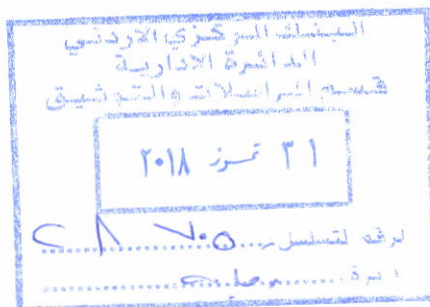 البنك المركزي الاردني
الدائرة الادارية
قسم المراسلات والتوثيق
٣١ تموز ٢٠١٨
رقم التسلسل